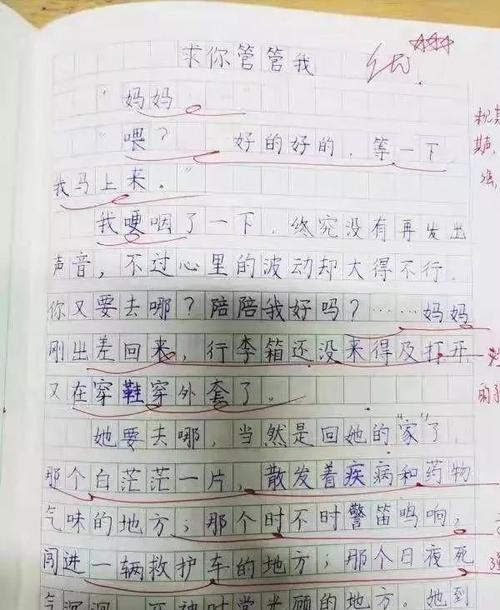 求你管管我
"妈妈
"喂? 好的好的,等一下,
我马上来。"
我哽咽了一下,终究没有再发出
声音,不过心里的波动却大得不行。
你又要去哪?陪陪我好吗?……妈妈
刚出差回来,行李箱还没来得及打开
又在穿鞋穿外套了。
她要去哪,当然是回她的"家"了,
那个白茫茫一片,散发着疾病和药物
气味的地方;那个时不时警笛鸣响,
闯进一辆救护车的地方;那个日夜死
气沉沉,
她到